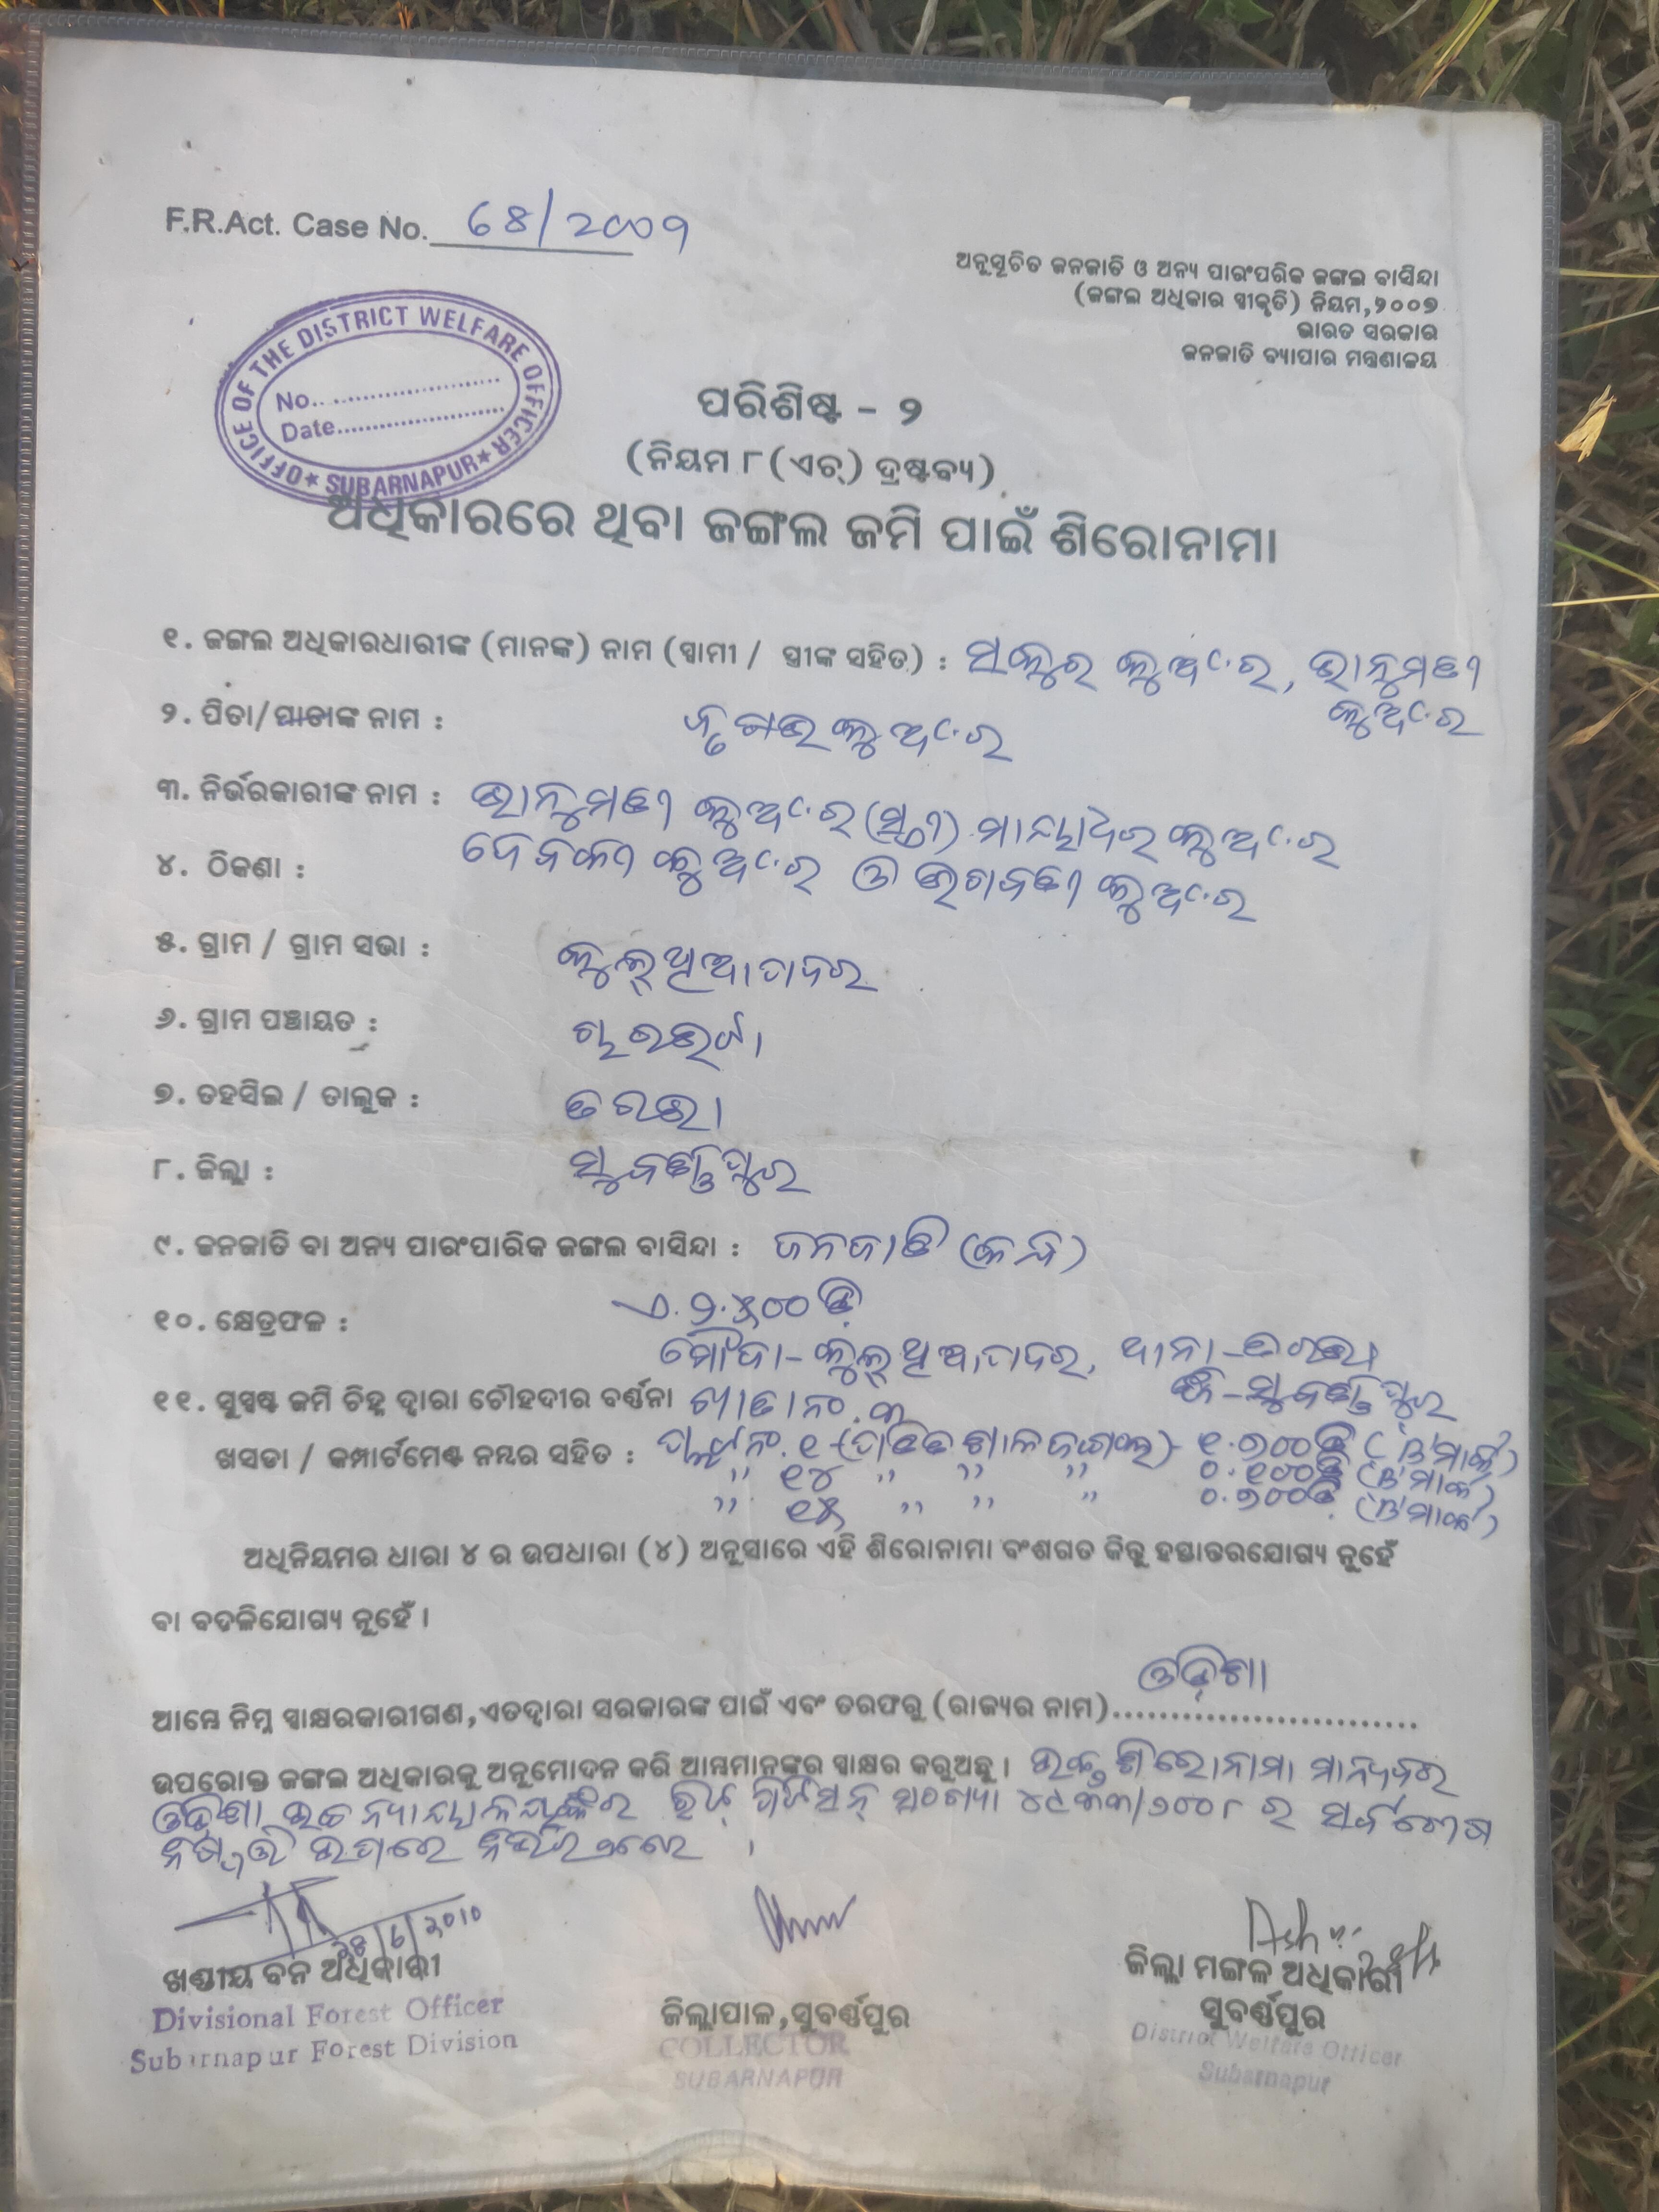 F.R.Act. Case No. 68/2009
ଅନୁସୂଚିତ ଜନଜାତି ଓ ଅନ୍ୟ ପାରଂପରିକ ଜଙ୍ଗଲ ବାସିନ୍ଦା
(ଜଙ୍ଗଲ ଅଧିକାର ସ୍ୱୀକୃତି) ନିୟମ,୨୦୦୭
ଭାରତ ସରକାର
ଜନଜାତି ବ୍ୟାପାର ମନ୍ତ୍ରଣାଳୟ
OFFICE OF THE DISTRICT WELFARE OFFICER
No.. ........................
Date........................
★ SUBARNAPUR ★
ପରିଶିଷ୍ଟ - ୨
(ନିୟମ ୮ (ଏଚ୍) ଦ୍ରଷ୍ଟବ୍ୟ)
ଅଧିକାରରେ ଥିବା ଜଙ୍ଗଲ ଜମି ପାଇଁ ଶିରୋନାମା
୧. ଜଙ୍ଗଲ ଅଧିକାରଧାରୀଙ୍କ (ମାନଙ୍କ) ନାମ (ସ୍ୱାମୀ / ସ୍ତ୍ରୀଙ୍କ ସହିତ) : କୁଅଁର, ଭାନୁମତୀ
କୁଅଁର
୨. ପିତା/ମାତାଙ୍କ ନାମ : କୁଅଁର
୩. ନିର୍ଭରକାରୀଙ୍କ ନାମ : ଭାନୁମତୀ କୁଅଁର (ସ୍ତ୍ରୀ) କୁଅଁର
୪. ଠିକଣା : କୁଅଁର ଓ ଭଗବତୀ କୁଅଁର
୫. ଗ୍ରାମ / ଗ୍ରାମ ସଭା : କୁଲ୍‌ଥିଆପାଦର
୬. ଗ୍ରାମ ପଞ୍ଚାୟତ :
୭. ତହସିଲ / ତାଲୁକ : ତରଭା
୮. ଜିଲ୍ଲା : ସୁବର୍ଣ୍ଣପୁର
୯. ଜନଜାତି ବା ଅନ୍ୟ ପାରଂପାରିକ ଜଙ୍ଗଲ ବାସିନ୍ଦା : ଜନଜାତି (କନ୍ଧ)
୧୦. କ୍ଷେତ୍ରଫଳ : ଏ.୨.୫୦୦ ଡି
ମୌଜା - କୁଲ୍‌ଥିଆପାଦର, ଥାନା - ତରଭା
ଜି - ସୁବର୍ଣ୍ଣପୁର
୧୧. ସୁସ୍ପଷ୍ଟ ଜମି ଚିହ୍ନ ଦ୍ୱାରା ଚୌହଦୀର ବର୍ଣ୍ଣନା ଖାତା ନଂ. ୩
ଖସଡା / କମ୍ପାର୍ଟମେଣ୍ଟ ନମ୍ବର ସହିତ : ପ୍ଲଟ ନଂ. ୧ (ପତିତ ଶାଳ ଜଙ୍ଗଲ) - ୧.୭୦୦ଡି ('B' ମାର୍କ)
" ୧୪ " " " ୦.୧୦୦ଡି ('B' ମାର୍କ)
" ୧୫ " " " ୦.୭୦୦ଡି ('B' ମାର୍କ)
ଅଧିନିୟମର ଧାରା ୪ ର ଉପଧାରା (୪) ଅନୁସାରେ ଏହି ଶିରୋନାମା ବଂଶଗତ କିନ୍ତୁ ହସ୍ତାନ୍ତରଯୋଗ୍ୟ ନୁହେଁ
ବା ବଦଳିଯୋଗ୍ୟ ନୁହେଁ ।
ଓଡ଼ିଶା
ଆମ୍ଭେ ନିମ୍ନ ସ୍ୱାକ୍ଷରକାରୀଗଣ,ଏତଦ୍ୱାରା ସରକାରଙ୍କ ପାଇଁ ଏବଂ ତରଫରୁ (ରାଜ୍ୟର ନାମ)..........................
ଉପରୋକ୍ତ ଜଙ୍ଗଲ ଅଧିକାରକୁ ଅନୁମୋଦନ କରି ଆମ୍ଭମାନଙ୍କର ସ୍ୱାକ୍ଷର କରୁଅଛୁ । ଉକ୍ତ ଶିରୋନାମା ମାନ୍ୟବର
ଓଡ଼ିଶା ଉଚ୍ଚ ନ୍ୟାୟାଳୟଙ୍କର ରିଟ୍ ପିଟିସନ୍ ସଂଖ୍ୟା ୪୯୩୩/୨୦୦୮ ର ସର୍ବଶେଷ
ନିଷ୍ପତ୍ତି ଉପରେ ନିର୍ଭର କରେ ।
28/6/2010
ଖଣ୍ଡୀୟ ବନ ଅଧିକାରୀ
Divisional Forest Officer
Subarnapur Forest Division
ଜିଲ୍ଲାପାଳ,ସୁବର୍ଣ୍ଣପୁର
COLLECTOR
SUBARNAPUR
ଜିଲ୍ଲା ମଙ୍ଗଳ ଅଧିକାରୀ
ସୁବର୍ଣ୍ଣପୁର
District Welfare Officer
Subarnapur